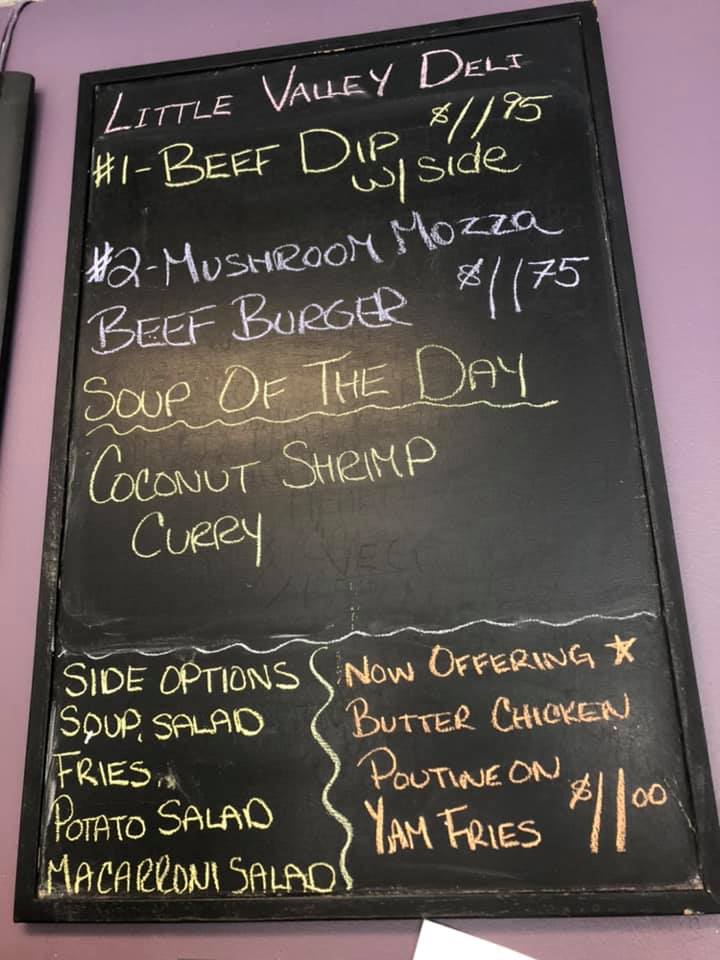 LITTLE VALLEY DELI
#1-BEEF DIP $11 95
w/ side
#2-MUSHROOM MOZZA
BEEF BURGER $11 75
SOUP OF THE DAY
COCONUT SHRIMP
CURRY
SIDE OPTIONS
SOUP, SALAD
FRIES,
POTATO SALAD
MACARRONI SALAD
NOW OFFERING
BUTTER CHICKEN
POUTINE ON
YAM FRIES $11 00